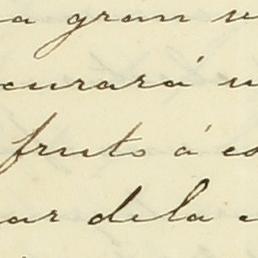 a gran
curará
fruto á
ar dela